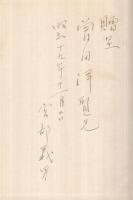 贈呈
菅田洋賢兄
昭和十九年十一月八日
宮部義男